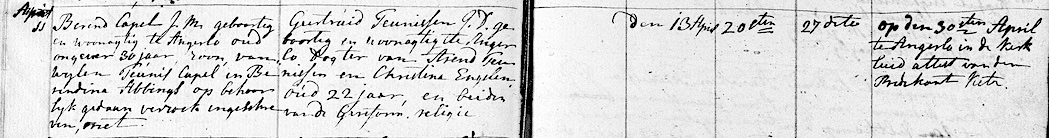 April
11
Berend Capel J.M. geboortig
en woonagtig te Angerlo oud
ongeveer 30 jaar, zoon van
wylen Teunis Capel en Be
rindina Abbings op behoor
lyk gedaan verzoek ingeschre
ven, met
Geertruid Teunissen J.D. ge
boortig en woonagtig te Anger
lo Dogter van Arend Teu
nissen en Christina Engelen
oud 22 jaar, en beiden
van de Gereform. religie
den 13 April
20sten
27 dito
op den 30sten April
te Angerlo in de Kerk
luid attest van den
Predikant